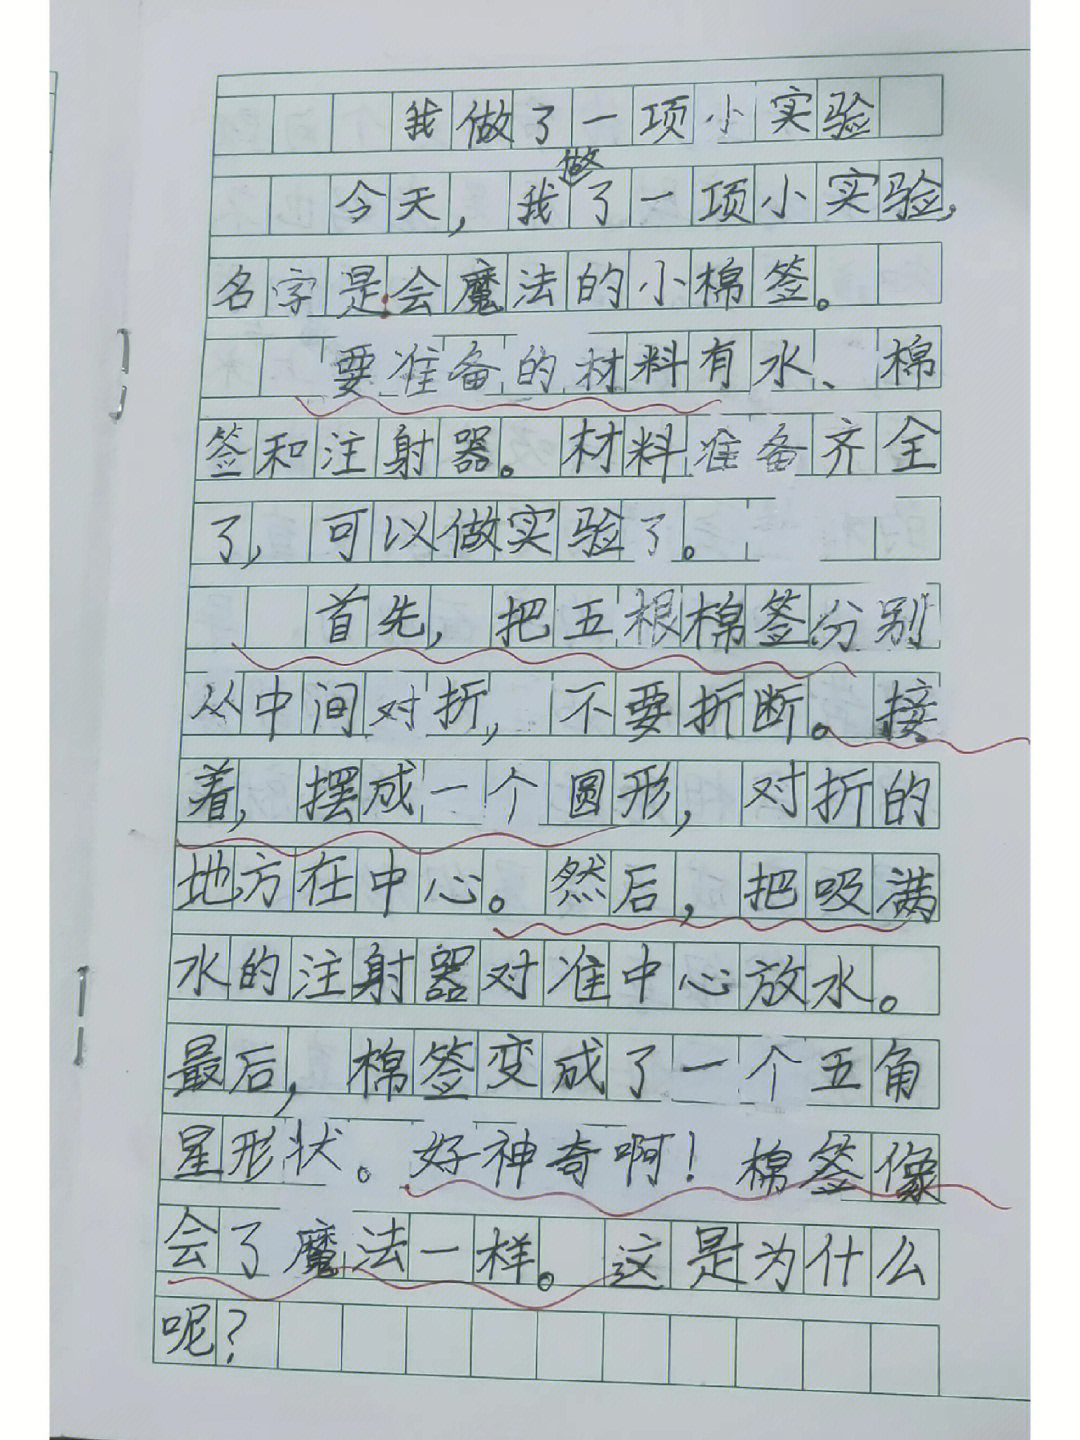 我做了一项小实验
今天，我做了一项小实验，
名字是会魔法的小棉签。
要准备的材料有水、棉
签和注射器。材料准备齐全
了，可以做实验了。
首先，把五根棉签分别
从中间对折，不要折断。接
着，摆成一个圆形，对折的
地方在中心。然后，把吸满
水的注射器对准中心放水。
最后，棉签变成了一个五角
星形状。好神奇啊！棉签像
会了魔法一样。这是为什么
呢？